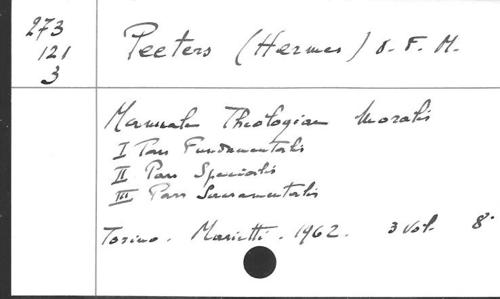 273
121
3
Peeters (Hermes) O. F. M.
Manuale Theologiae Moralis
I Pars Fundamentalis
II Pars Specialis
III Pars Sacramentalis
Torino. Marietti. 1962. 3 vol. 8°